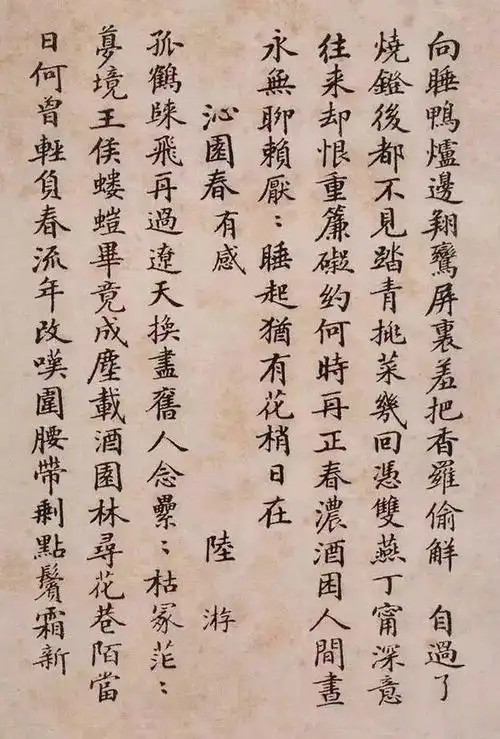 向睡鴨爐邊翔鸞屏裏羞把香羅偷解　自過了
燒鐙後都不見踏青挑菜幾回憑雙燕丁甯深意
往来却恨重簾礙約何時再正春濃酒困人間晝
永無聊賴厭：睡起猶有花梢日在
沁園春有感　陸游
孤鶴歸飛再過遼天換盡舊人念纍：枯冢茫：
夢境王侯螻螘畢竟成塵載酒園林尋花巷陌當
日何曾輕負春流年改嘆圍腰帶剩點鬢霜新